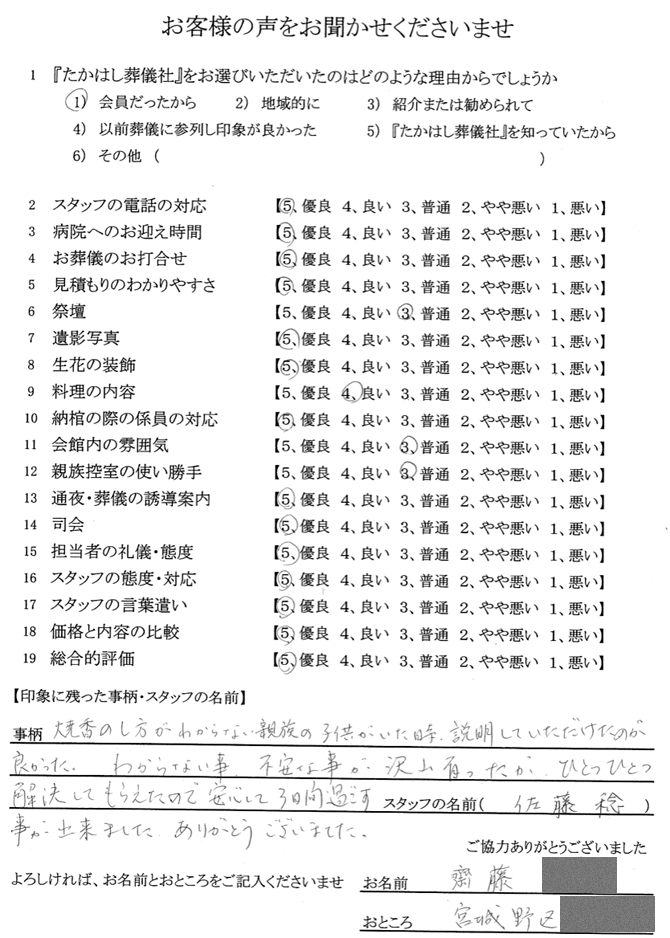 お客様の声をお聞かせくださいませ
1 『たかはし葬儀社』をお選びいただいたのはどのような理由からでしょうか
1) 会員だったから 2) 地域的に 3) 紹介または勧められて
4) 以前葬儀に参列し印象が良かった 5) 『たかはし葬儀社』を知っていたから
6) その他 ( )
2 スタッフの電話の対応 【5、優良 4、良い 3、普通 2、やや悪い 1、悪い】
3 病院へのお迎え時間 【5、優良 4、良い 3、普通 2、やや悪い 1、悪い】
4 お葬儀のお打合せ 【5、優良 4、良い 3、普通 2、やや悪い 1、悪い】
5 見積もりのわかりやすさ 【5、優良 4、良い 3、普通 2、やや悪い 1、悪い】
6 祭壇 【5、優良 4、良い 3、普通 2、やや悪い 1、悪い】
7 遺影写真 【5、優良 4、良い 3、普通 2、やや悪い 1、悪い】
8 生花の装飾 【5、優良 4、良い 3、普通 2、やや悪い 1、悪い】
9 料理の内容 【5、優良 4、良い 3、普通 2、やや悪い 1、悪い】
10 納棺の際の係員の対応 【5、優良 4、良い 3、普通 2、やや悪い 1、悪い】
11 会館内の雰囲気 【5、優良 4、良い 3、普通 2、やや悪い 1、悪い】
12 親族控室の使い勝手 【5、優良 4、良い 3、普通 2、やや悪い 1、悪い】
13 通夜・葬儀の誘導案内 【5、優良 4、良い 3、普通 2、やや悪い 1、悪い】
14 司会 【5、優良 4、良い 3、普通 2、やや悪い 1、悪い】
15 担当者の礼儀・態度 【5、優良 4、良い 3、普通 2、やや悪い 1、悪い】
16 スタッフの態度・対応 【5、優良 4、良い 3、普通 2、やや悪い 1、悪い】
17 スタッフの言葉遣い 【5、優良 4、良い 3、普通 2、やや悪い 1、悪い】
18 価格と内容の比較 【5、優良 4、良い 3、普通 2、やや悪い 1、悪い】
19 総合的評価 【5、優良 4、良い 3、普通 2、やや悪い 1、悪い】
【印象に残った事柄・スタッフの名前】
事柄 焼香のし方がわからない親族の子供がいた時、説明していただけたのが
良かった。 わからない事、不安な事が沢山有ったが、ひとつひとつ
解決してもらえたので安心して3日間過ごす スタッフの名前( 佐藤 稔 )
事が出来ました。ありがとうございました。
ご協力ありがとうございました
よろしければ、お名前とおところをご記入くださいませ お名前 齋藤
おところ 宮城野区